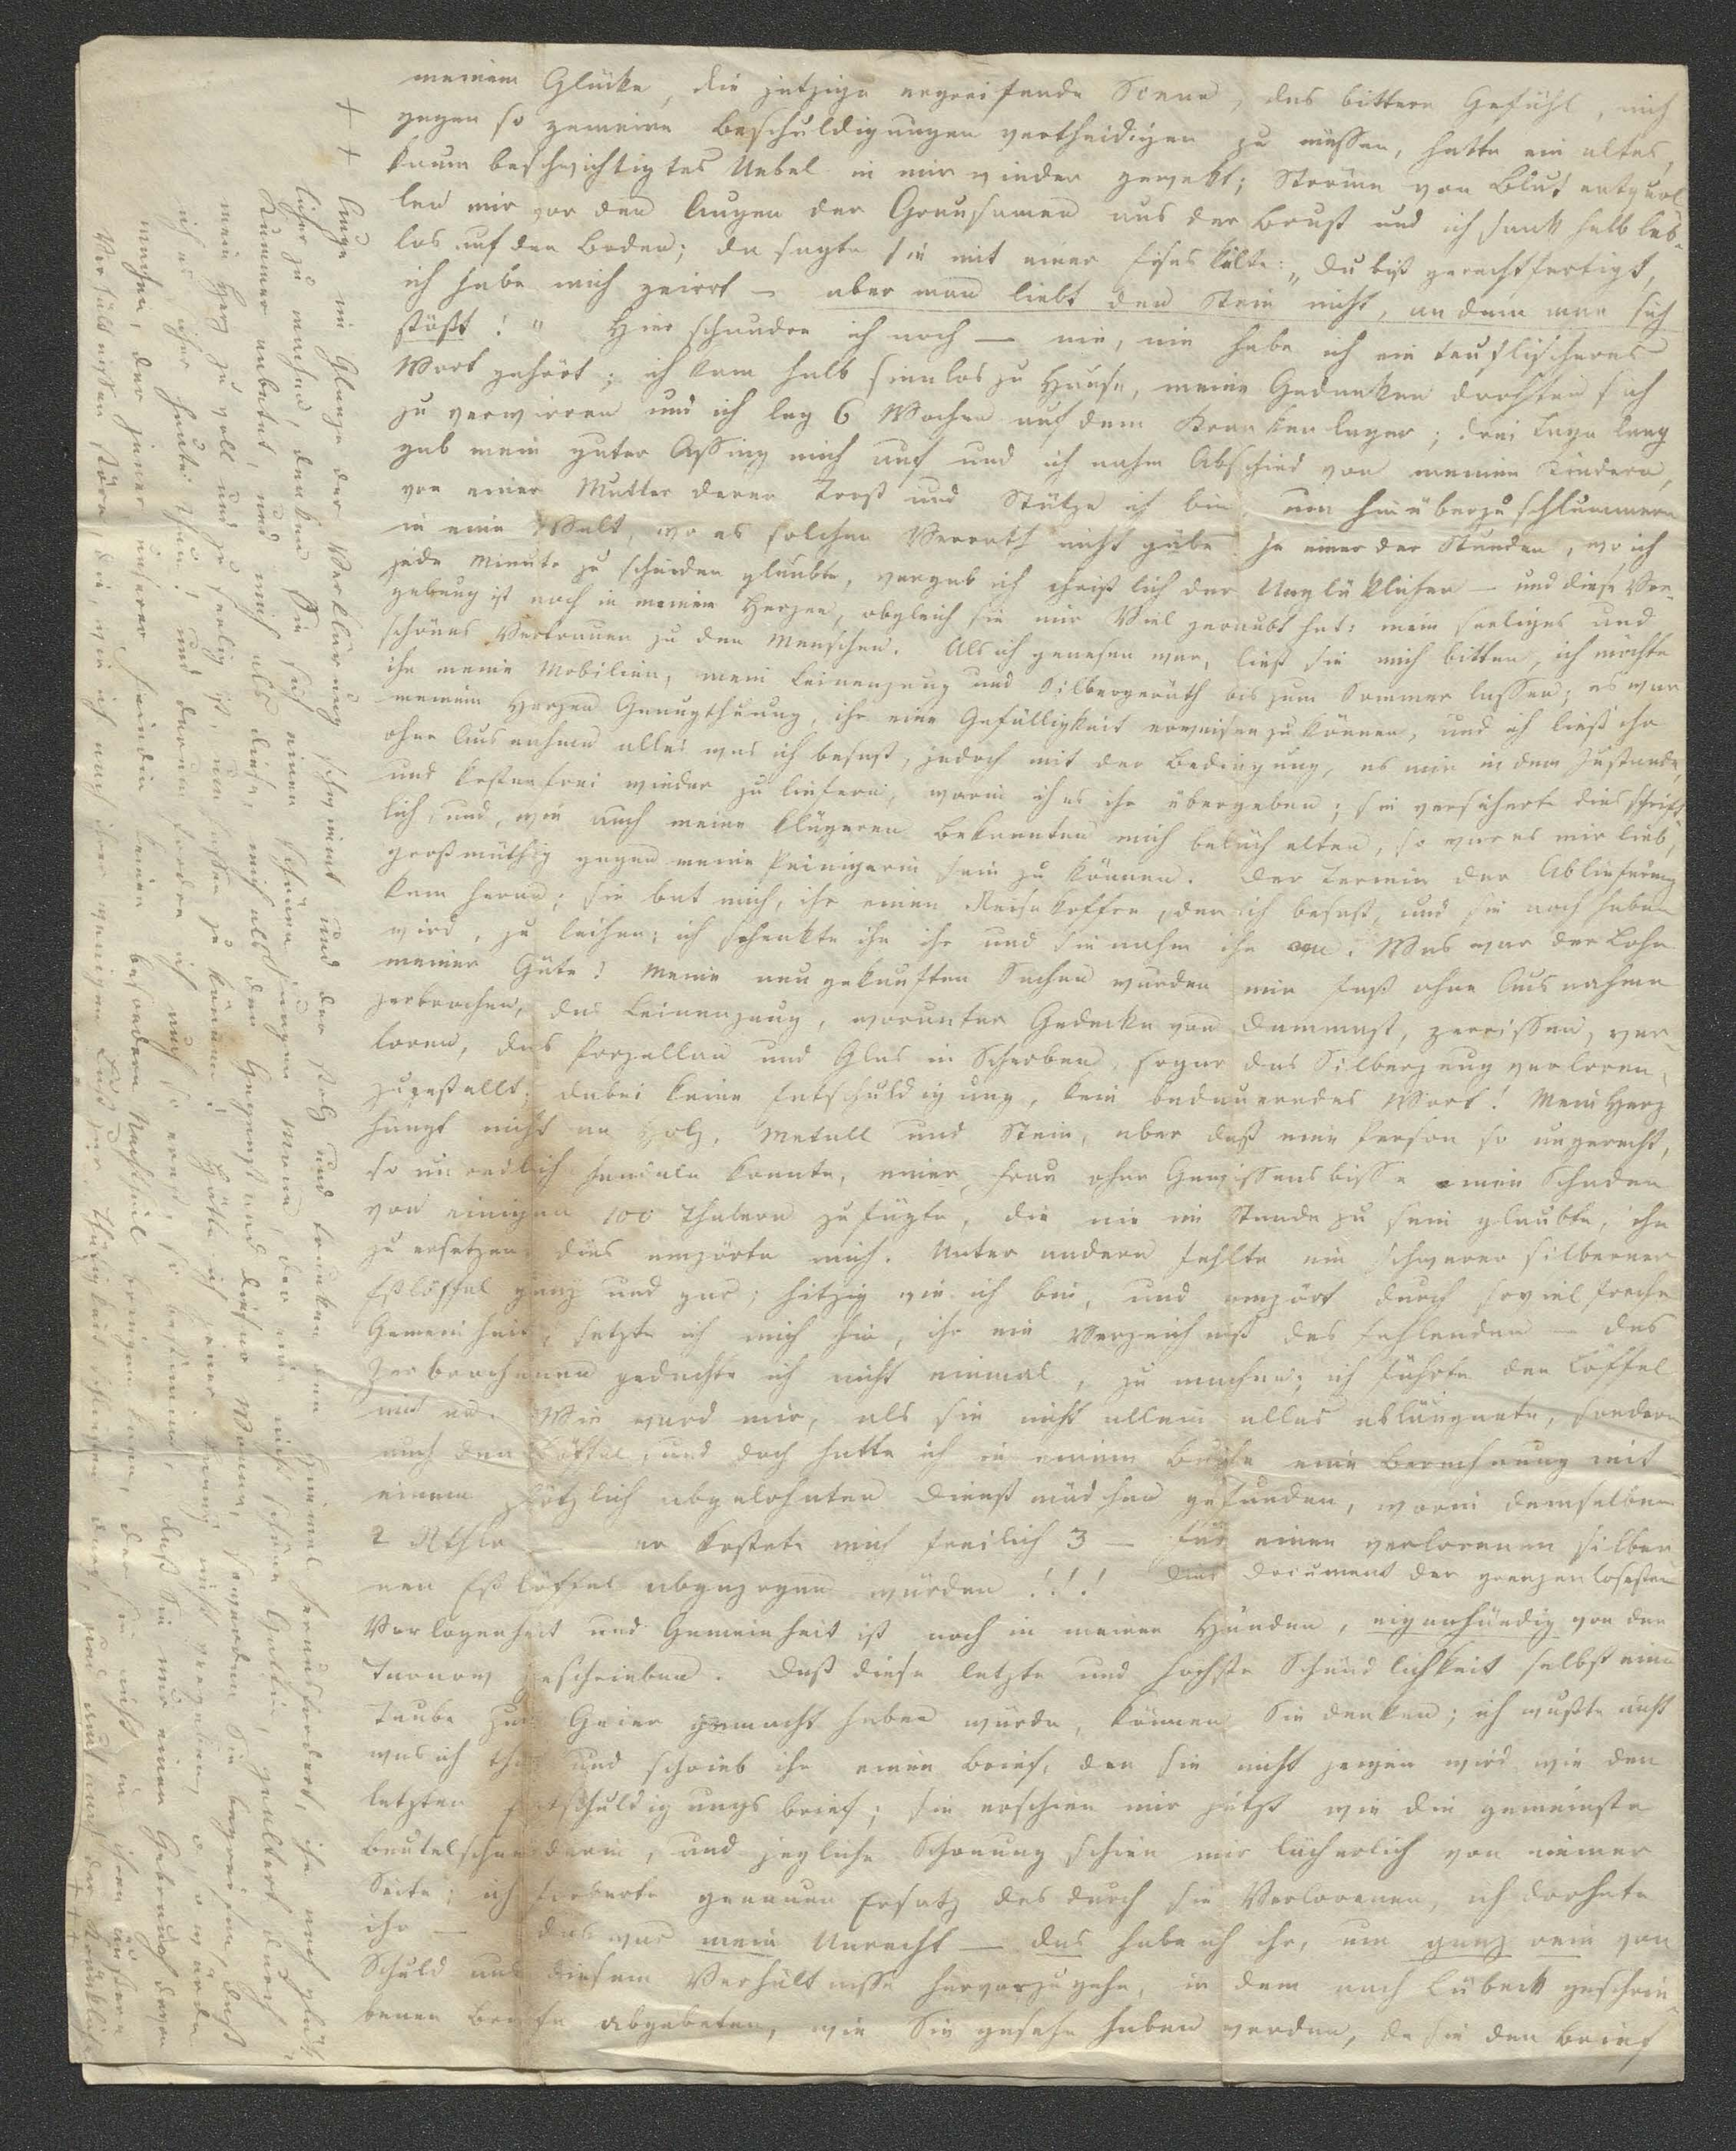 meinem Glücke, die jetzige ergreifende Scene, das bittere Gefühl, mich
gegen so gemeine Beschuldigungen vertheidigen zu müssen, hatte ein altes,
kaum beschwichtigtes Uebel in mir wieder gewekt; Ströme von Blut entquol
len mir vor den Augen der Grausamen aus der Brust und ich sank halb leb-
los auf den Boden; da sagte sie mit einer Eiseskälte: „Du bist gerechtfertigt,
ich habe mich geirrt — aber man liebt den Stein nicht, an dem man sich
stößt!" Hier schaudre ich noch — nie, nie habe ich ein teuflischeres
Wort gehört; ich kam halb sinnlos zu Hause, meine Gedanken drohten sich
zu verwirren und ich lag 6 Wochen auf dem Krankenlager; drei Tage lang
gab mein guter Assing mich auf und ich nahm Abschied von meinen Kindern,
von einer Mutter deren Trost und Stütze ich bin, um hinüberzuschlummern
in eine Welt, wo es solchen Verrath nicht gäbe. In einer der Stunden, wo ich
jede Minute zu scheiden glaubte, vergab ich christlich der Unglüklichen — und diese Ver-
gebung ist noch in meinem Herzen, obgleich sie mir Viel geraubt hat: mein seeliges und
schönes Vertrauen zu den Menschen. Als ich genesen war, ließ sie mich bitten, ich möchte
ihr meine Mobilien, mein Leinenzeug und Silbergeräth bis zum Sommer lassen; es war
meinem Herzen Genugthuung, ihr eine Gefälligkeit erweisen zu können, und ich ließ ihr
ohne Ausnahme alles was ich besaß, jedoch mit der Bedingung, es mir in dem Zustande,
und kostenfrei wieder zu liefern, worin ich es ihr übergeben; sie versicherte dies schrift-
lich, und, wie auch meine klügeren Bekannten mich belächelten, so war es mir lieb,
großmüthig gegen meine Peinigerin sein zu können. Der Termin der Ablieferung
kam heran; sie bat mich, ihr einen Reisekoffer, den ich besaß, und sie noch haben
wird, zu leihen; ich schenkte ihn ihr und sie nahm ihn an. Was war der Lohn
meiner Güte! Meine neugekauften Sachen wurden mir fast ohne Ausnahme
zerbrochen, das Leinenzeug, worunter Gedecke von Dammast, zerrissen, ver-
loren, das Porzellan und Glas in Scherben, sogar das Silberzeug verloren,
zugestellt; dabei keine Entschuldigung, kein bedauerndes Wort! Mein Herz
hängt nicht an Holz, Metall und Stein, aber daß eine Person so ungerecht,
so unredlich handeln konnte, einer Frau ohne Gewissensbisse einen Schaden
von einigen 100 Thalern zufügte, die nie im Stande zu sein glaubte, ihn
zu ersetzen: dies empörte mich. Unter andern fehlte ein schwerer silberner
Eßlöffel ganz und gar; hitzig wie ich bin, und empört durch soviel freche
Gemeinheit, setzte ich mich hin, ihr ein Verzeichniß des fehlenden — des
Zerbrochenen gedachte ich nicht einmal, zu machen; ich führte den Löffel
mit an. Wie ward mir, als sie nicht allein alles abläugnete, sondern
auch den Löffel, und doch hatte ich in einem Buche eine Berechnung mit
einem plötzlich abgelohnten Dienstmädchen gefunden, worin demselben
2 Rthlr — er kostete mich freilich 3 — für einen verlorenen silber
nen Eßlöffel abgezogen wurden!!! Dies Document der grenzenlosesten
Verlogenheit und Gemeinheit ist noch in meinen Händen, eigenhändig von der
Tarnow geschrieben. Daß diese letzte und höchste Schändlichkeit selbst eine
Taube zum Geier gemacht haben würde, können Sie denken; ich wußte nicht
was ich that und schrieb ihr einen Brief, den sie nicht zeigen wird wie den
letzten Entschuldigungsbrief; sie erschien mir jetzt wie die gemeinste
Beutelschneiderin, und jegliche Schonung schien mir lächerlich von meiner
Seite; ich forderte genauen Ersatz des durch sie Verlorenen, ich drohete
ihr — das war mein Unrecht — das habe ich ihr, um ganz rein von
Schuld aus diesem Verhältnisse hervorzugehn, in dem nach Lübeck geschrie-
benen Briefe abgebeten, wie Sie gesehn haben werden, da sie den Brief
+ +
Auge im Glanze der Verklärung schwimmt und der stolz und trunken den Himmel herausfordert, ihn noch glük-
licher zu machen, denken Sie sich einen schönen, jungen Mann, der eine nicht schöne Gattin, gealtert durch
Kummer anbetet, und mich als diese, mich als den Gegenstand dieser Wonne, so werden Sie begreifen, daß
mein Herz zu voll und zu seelig ist, um hassen zu können! Hätte ich jener Hand nicht vergeben, o, so würde
ich es jetzt thun, und darum fordre ich auch so ernst, so bestimmt, daß Sie nie einen Gebrauch davon
machen, der jener unserer Feindin keinen besondern Nachtheil bringen kann, der sie nicht in ihren äußern
Verhältnissen störe, die, wie ich nach ihrer wenigen Lust zur Thätigkeit schließen darf, und auch nach der Kränklich-
+ +